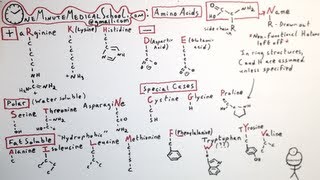 One Minute Medical School
@gmail.com
Amino Acids
Name
side chain R
R - Drawn out
Non-Functional Halo
left off
In ring structures,
C and N are assumed
unless specified
+ aRginine
K (Lysine)
Histidine
D (Aspartic Acid)
E (Glutamic acid)
Polar (Water soluble)
Serine Threonine AsparagiNe
Special Cases
Cystine Glycine Proline
Fat Soluble "Hydrophobic"
Alanine Isoleucine Leucine Methionine
F (Phenylalanine)
Tryptophan
TYrosine
Valine